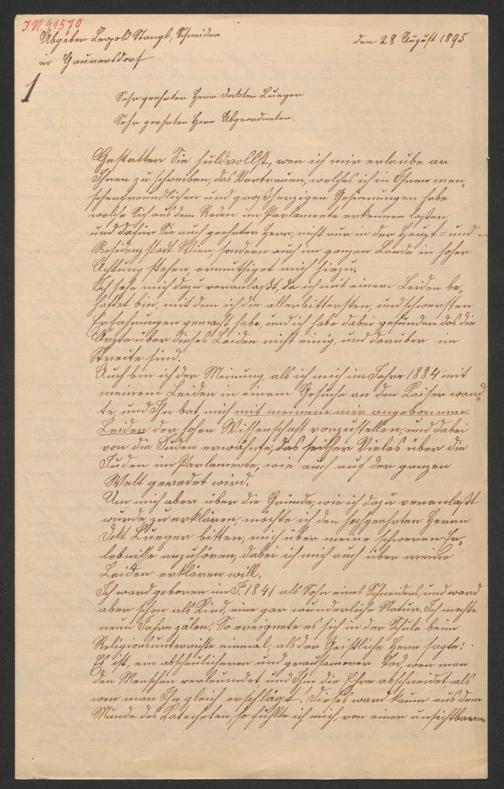 J.N. 41570
Abgeber Leopold Stangl, Schneider
in Gaunersdorf
den 28 August 1895
1
Sehr geehrter Herr Doktor Lueger
Sehr geehrter Herr Abgeordneter.
Gestatten Sie huldvollst, wen ich mir erlaube an
Ihnen zu schreiben, das Vertrauen, welches ich in Ihren men-
schenfreundlichen und großherzigen Gesinnungen habe
welche sich aus dem Reden im Parlamente erkennen laßen
und dafür Sie auch geehrter Herr, nicht nur in der Haupt- und
Residenzstadt Wien, sondern auch im ganzen Lande in hoher
Achtung stehen, ermuthiget mich hiezu.
Ich sehe mich dazu veranlaßt, da ich mit einem Leiden be-
haftet bin, mit dem ich die allerbittersten, und schwersten
Erfahrungen gemacht habe, und ich habe dabei gefunden das die
Ärzte über dieses Leiden nicht einig, und darüber im
Streite sind.
Auch bin ich der Meinung als ich mich im Jahre 1884 mit
meinem Leiden in einem Gesuche an den Kaiser wand-
te, und Ihn bat mich mit meinem mir angeborenen
Leiden der hohen Wissenschaft vorzustellen, und dabei
von die Juden erwähnte, das seither Vieles über die
Juden im Parlamente, wie auch auf der ganzen
Welt geredet wird.
Um mich aber über die Gründe, wie ich dazu veranlaßt
wurde, zu erklären möchte ich den hochgeehrten Herrn
Dokt Lueger bitten, mich über meine schweren Er-
lebnisse anzuhören, dabei ich mich auch über meine
Leiden erklären will.
Ich ward geboren im J. 1841 als Sohn eines Schneiders, und ward
aber schon als Kind eine gar wunderliche Natur. Ich mochte
neun Jahre zälen, So ereignete es sich in der Schule beim
Religionsunterrichte einmal, als der Geistliche Herr sagte:
Es ist, ein abscheulicherer und grausamerer Tod, wen man
den Menschen verleumdet und Ihm die Ehre abschneidet als
wen man Ihn gleich erschlägt. Dieses ward kaum aus dem
Munde des Katecheten, so fühlte ich mich von einer unsichtbaren